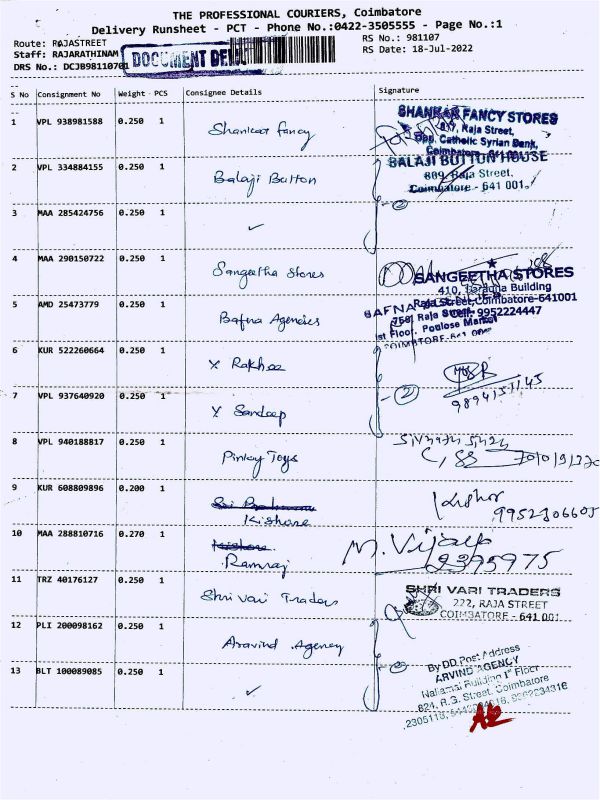 THE PROFESSIONAL COURIERS, Coimbatore
Delivery Runsheet - PCT - Phone No.:0422-3505555 - Page No.:1
Route: RAJASTREET
RS No.: 981107
Staff: RAJARATHINAM
RS Date: 18-Jul-2022
DRS No.: DCJB98110701
DOCUMENT DEL
S No Consignment No Weight PCS Consignee Details Signature
1 VPL 938981588 0.250 1 Shankar fancy
SHANKAR FANCY STORES
Raja Street,
Opp. Catholic Syrian Bank,
Coimbatore - 641001
2 VPL 334884155 0.250 1 Balaji Button
BALAJI BUTTON HOUSE
809, Raja Street,
Coimbatore - 641 001.
2
3 MAA 285424756 0.250 1 ✓
4 MAA 290150722 0.250 1 Sangeetha Stores
SANGEETHA STORES
410, Building
Raja Street, Coimbatore-641001
Cell: 9952224447
5 AMD 25473779 0.250 1 Bafna Agencies
BAFNA
Raja Street
1st Floor, Poulose Market
COIMBATORE-641 001
6 KUR 522260664 0.250 1 X Rakhee
7 VPL 937640920 0.250 1 X Sandeep
2
9894151145
8 VPL 940188817 0.250 1 Pinky Toys
9 KUR 608809896 0.200 1 Kishore
Kishor
9952306605
10 MAA 288810716 0.270 1 Kishore
Ramraj
M. Vijaya
2395975
11 TRZ 40176127 0.250 1 Shri vari Traders
SHRI VARI TRADERS
222, RAJA STREET
COIMBATORE - 641 001
12 PLI 200098162 0.250 1 Aravind Agency
2
By DD Post Address
ARVIND AGENCY
Building 1st Floor
624, R.G. Street, Coimbatore
13 BLT 100089085 0.250 1 ✓